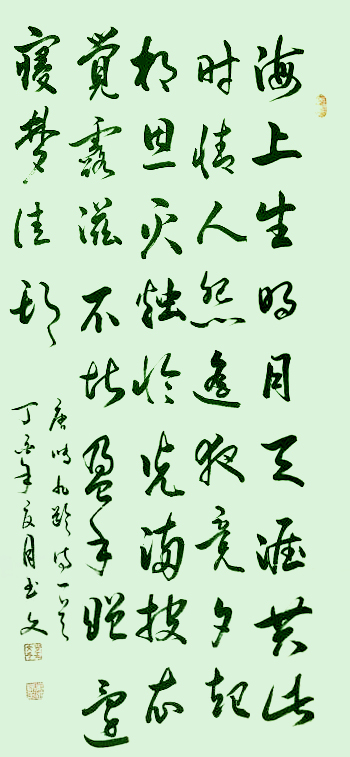 海上生明月天涯共此
时情人怨遥夜竟夕起
相思灭燭怜光满披衣
覺露滋不堪盈手赠還
寝夢佳期
唐張九齡诗一首
丁年夏月书文